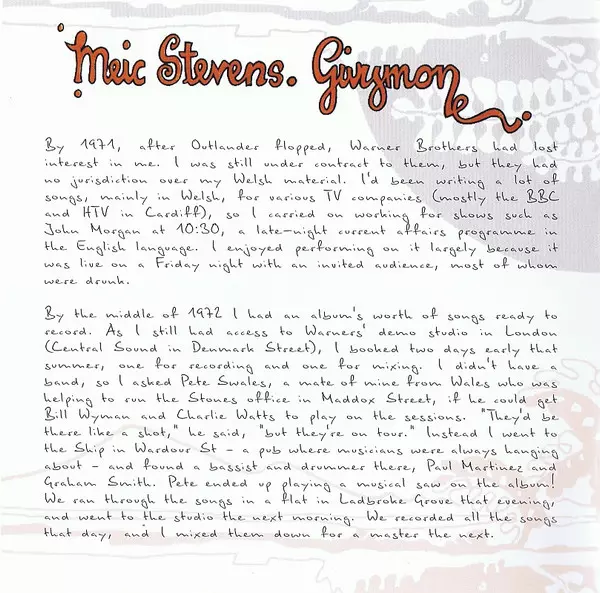 Meic Stevens. Gwymon.
By 1971, after Outlander flopped, Warner Brothers had lost
interest in me. I was still under contract to them, but they had
no jurisdiction over my Welsh material. I'd been writing a lot of
songs, mainly in Welsh, for various TV companies (mostly the BBC
and HTV in Cardiff), so I carried on working for shows such as
John Morgan at 10:30, a late-night current affairs programme in
the English language. I enjoyed performing on it largely because it
was live on a Friday night with an invited audience, most of whom
were drunk.
By the middle of 1972 I had an album's worth of songs ready to
record. As I still had access to Warners' demo studio in London
(Central Sound in Denmark Street), I booked two days early that
summer, one for recording and one for mixing. I didn't have a
band, so I asked Pete Swales, a mate of mine from Wales who was
helping to run the Stones office in Maddox Street, if he could get
Bill Wyman and Charlie Watts to play on the sessions. "They'd be
there like a shot," he said, "but they're on tour." Instead I went to
the Ship in Wardour St - a pub where musicians were always hanging
about - and found a bassist and drummer there, Paul Martinez and
Graham Smith. Pete ended up playing a musical saw on the album!
We ran through the songs in a flat in Ladbroke Grove that evening,
and went to the studio the next morning. We recorded all the songs
that day, and I mixed them down for a master the next.